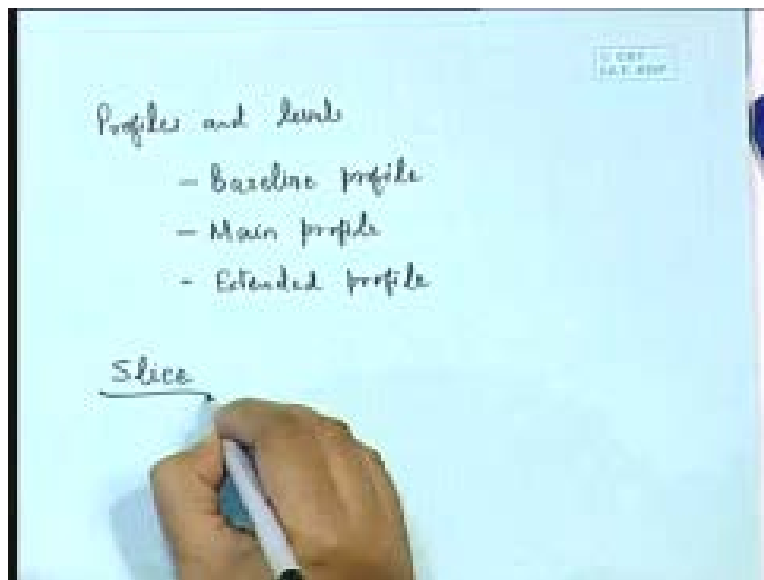 Profiles and levels
- Baseline profile
- Main profile
- Extended profile
Slice